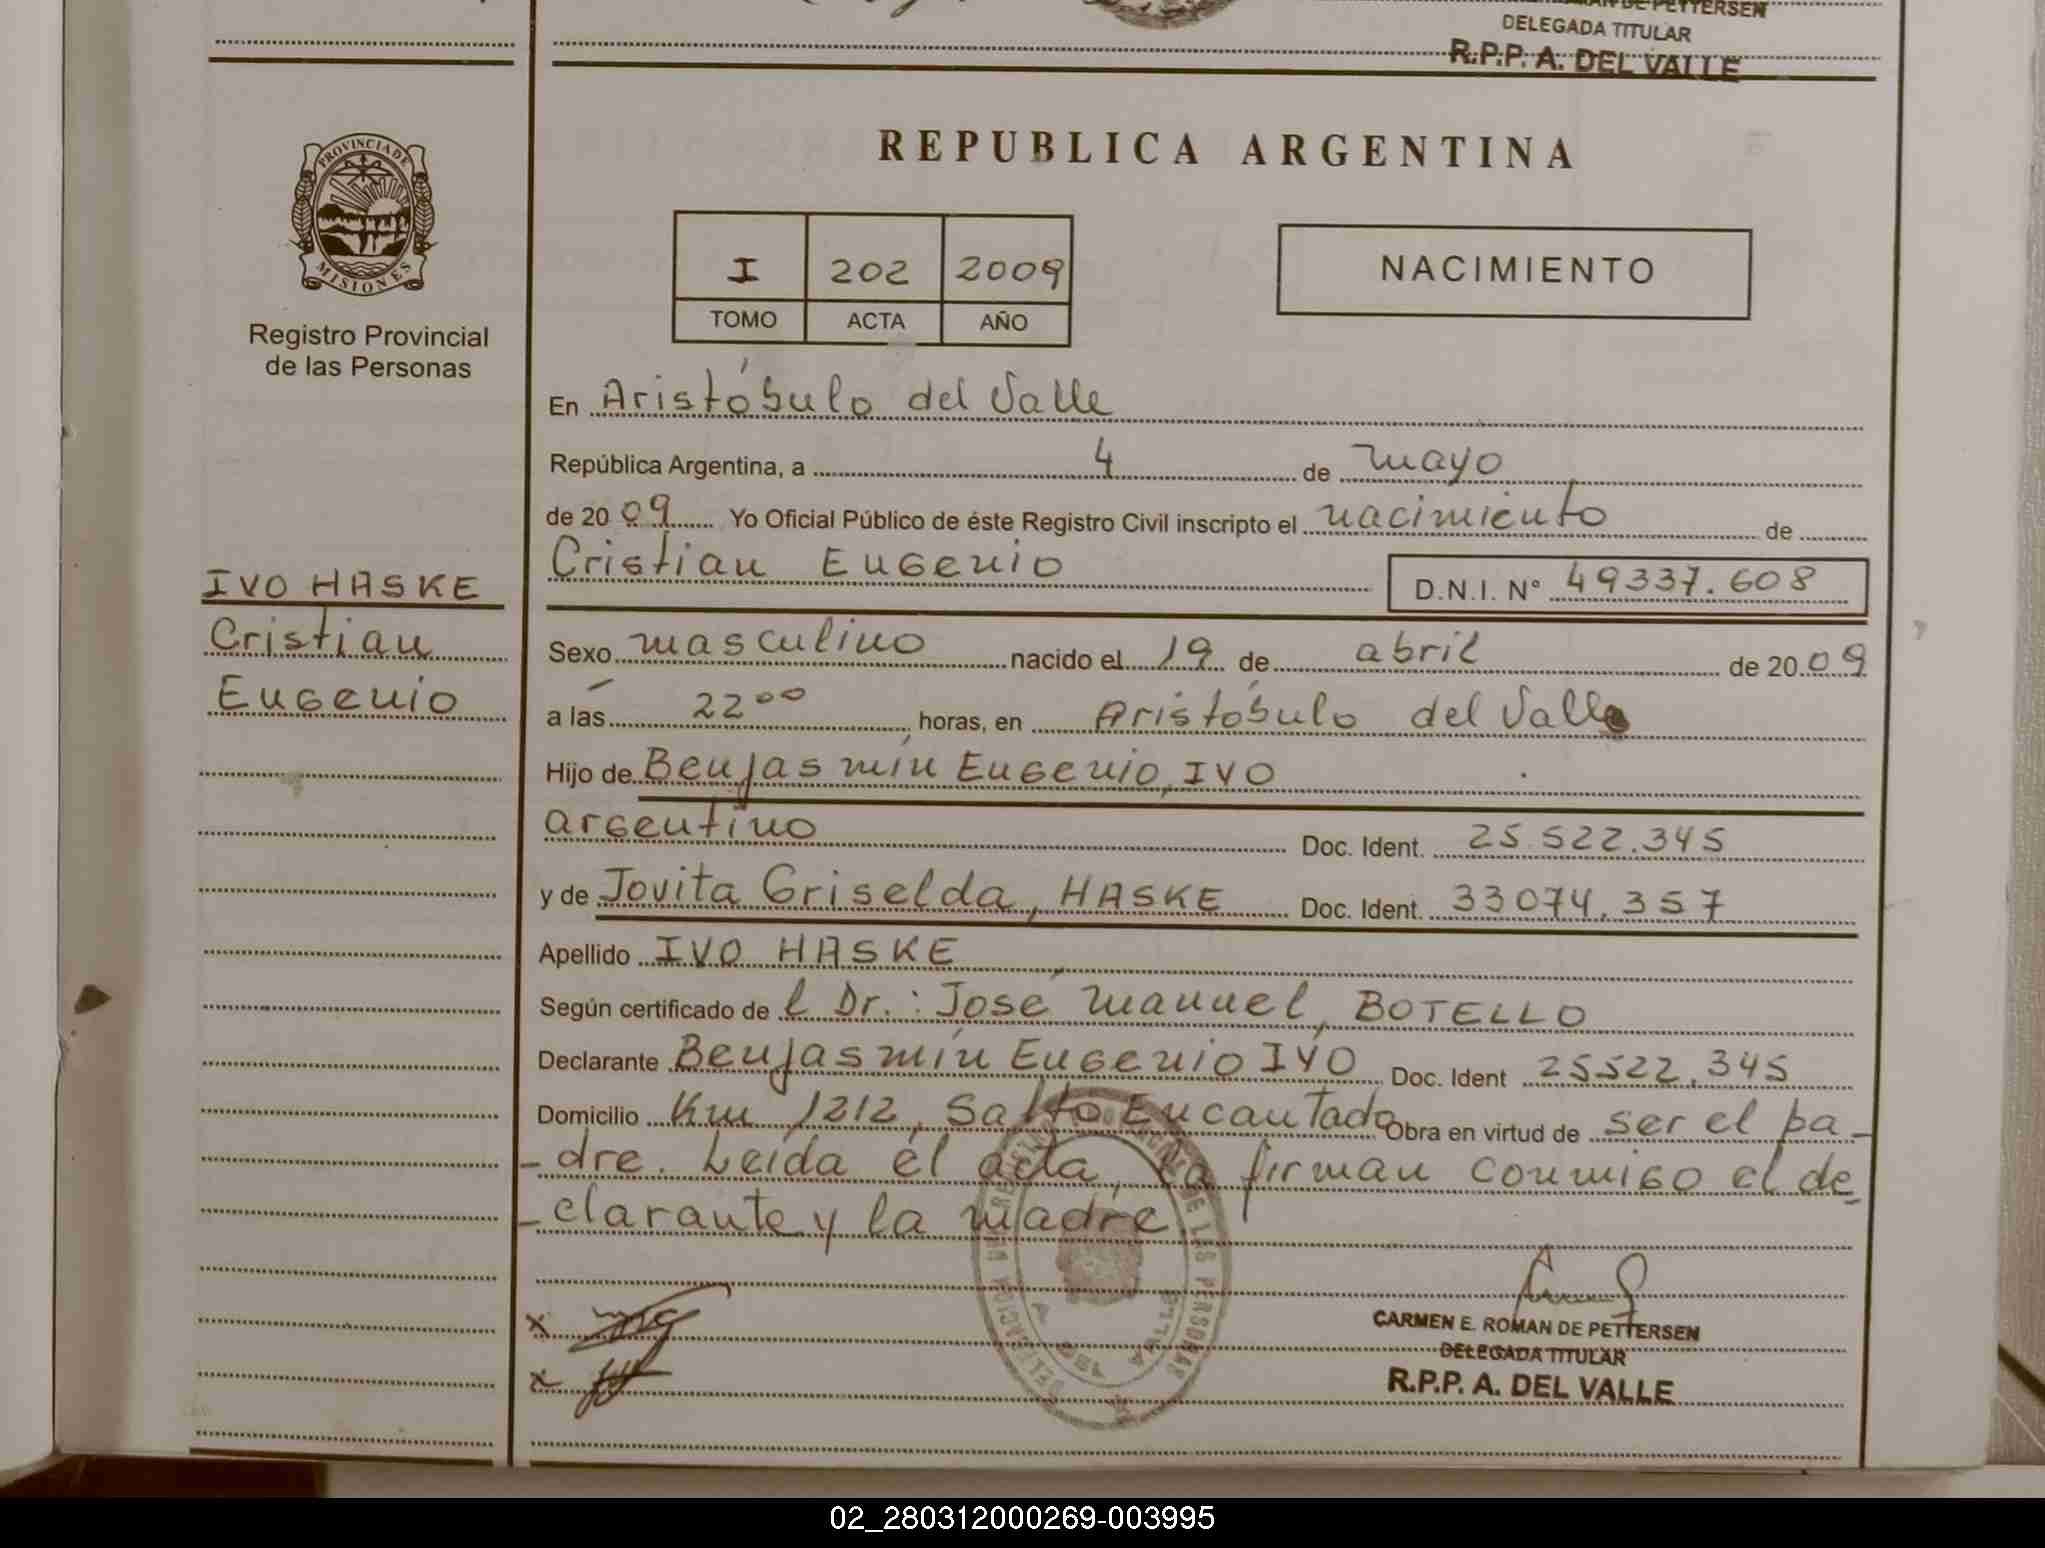 DELEGADA TITULAR
R.P.P. A. DEL VALLE
PROVINCIA DE
MISIONES
Registro Provincial
de las Personas
REPUBLICA ARGENTINA
I 202 2009
TOMO ACTA AÑO
NACIMIENTO
En Aristóbulo del Valle
República Argentina, a 4 de mayo
de 2009 Yo Oficial Público de éste Registro Civil inscripto el nacimiento de
Cristian Eugenio D.N.I. N° 49337.608
IVO HASKE
Cristian
Eugenio
Sexo masculino nacido el 19 de abril de 2009
a las 22 00 horas, en Aristóbulo del Valle
Hijo de Benjasmín Eugenio, IVO
argentino Doc. Ident. 25.522.345
y de Jovita Griselda, HASKE Doc. Ident. 33074.357
Apellido IVO HASKE
Según certificado de l Dr.: José Manuel, BOTELLO
Declarante Benjasmín Eugenio IVO Doc. Ident 25522.345
Domicilio Km 1212, Salto Encantado Obra en virtud de ser el pa-
-dre. Leída el acta, la firman conmigo el de-
-clarante y la madre.
CARMEN E. ROMAN DE PETTERSEN
DELEGADA TITULAR
R.P.P. A. DEL VALLE
02_280312000269-003995